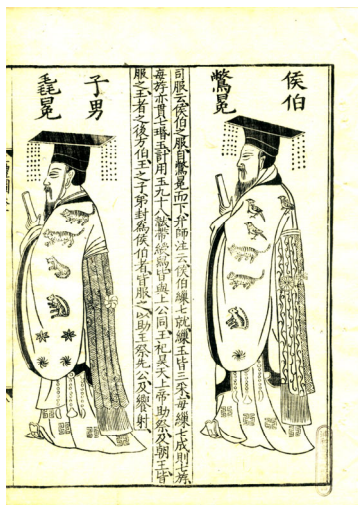 侯伯
鷩冕
司服云侯伯之服自鷩冕而下弁師注云侯伯繅七就繅玉皆三采每繅七成則七旒
每旒亦貫七玉計用玉九十八韍帶綬舄皆與上公同王祀昊天上帝助祭及朝王皆
服之王者之後方伯王之子弟封為侯伯者皆服之以助王祭先公及饗射
子男
毳冕